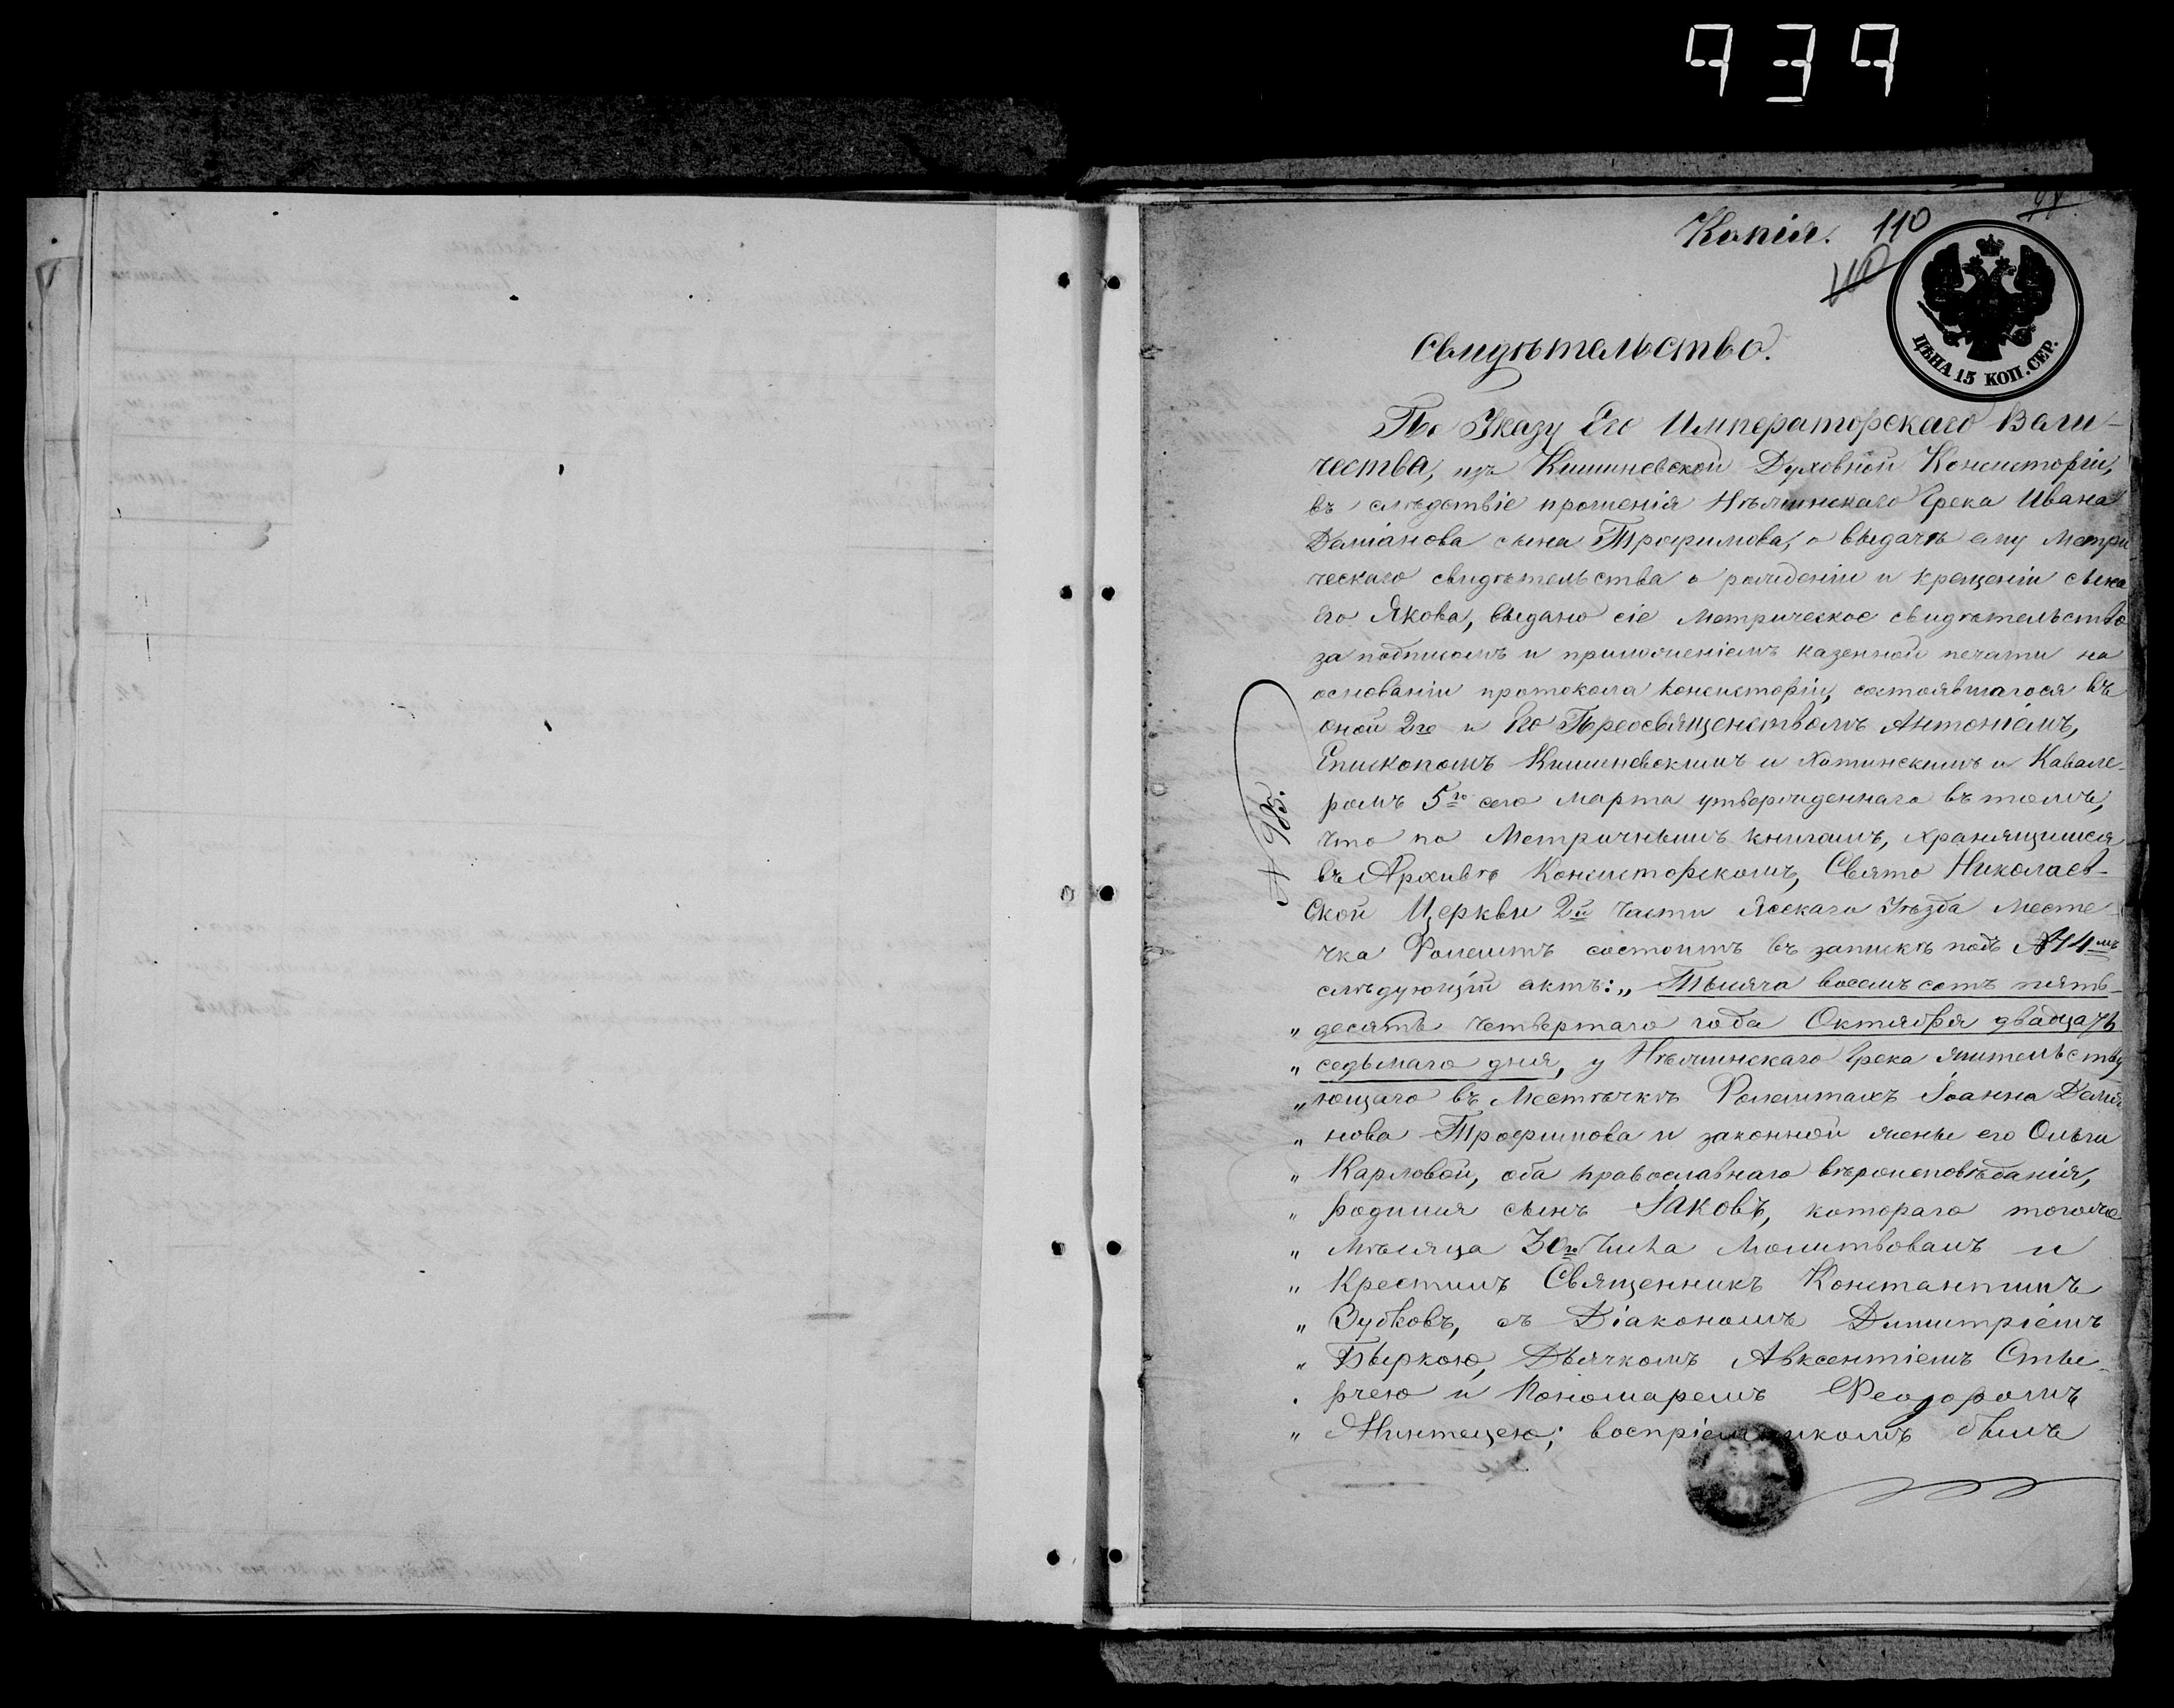 939
98
Копія. 110
110
ЦѢНА 15 КОП. СЕР.
Свидѣтельство.
По Указу Его Императорскаго Вели-
чества, изъ Кишиневской Духовной Консисторіи,
въ слѣдствіе прошенія Нѣжинскаго Грека Ивана
Даміанова сына Трофимова, о выдачѣ ему Метри
ческаго свидѣтельства о рожденіи и крещеніи сына
его Якова, выдано сіе Метрическое свидѣтельство
за подписомъ и приложеніемъ казенной печати на
основаніи протокола Консисторіи, состоявшагося въ
оной 2го и Его Преосвященствомъ Антоніемъ,
Епископомъ Кишиневскимъ и Хотинскимъ и Кавале-
ромъ 5го сего Марта утвержденнаго въ томъ,
№ 985.
что по Метричнымъ книгамъ, хранящимся
въ Архивѣ Консисторскомъ, Свято Николаев-
ской Церкви 2й части Ясскаго Уѣзда Месте-
чка Фолештъ состоитъ въ запискѣ подъ №14мъ
слѣдующій актъ: „Тысяча восемь сотъ пять-
„ десятъ четвертаго года Октября двадцать
„ седьмаго дня, у Нѣжинскаго Грека жительству
„ ющаго въ Местѣчкѣ Фолештахъ Іоанна Дамиа
„ нова Трофимова и законной жены его Ольги
„ Карловой, оба православнаго вѣроисповѣданія,
„ родился сынъ Іаковъ, котораго тогоже
„ Мѣсяца 30го числа Молитвовалъ и
„ Крестилъ Священникъ Константинъ
„ Зубковъ, съ Діакономъ Димитріемъ
„ Быркою, Дьячкомъ Авксентіемъ Сты-
„ рчею и Пономаремъ Феодоромъ
„ Нинтецею; воспріемникомъ былъ